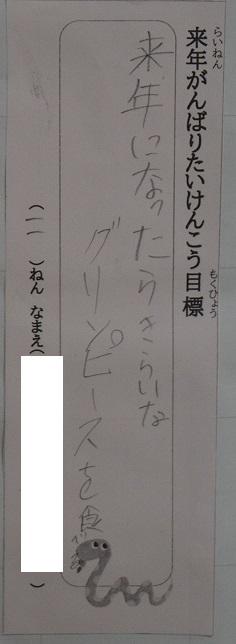 来年がんばりたいけんこう目標
らいねん
もくひょう
来年になったらきらいな
グリンピースを食べる
(二)ねん なまえ( )